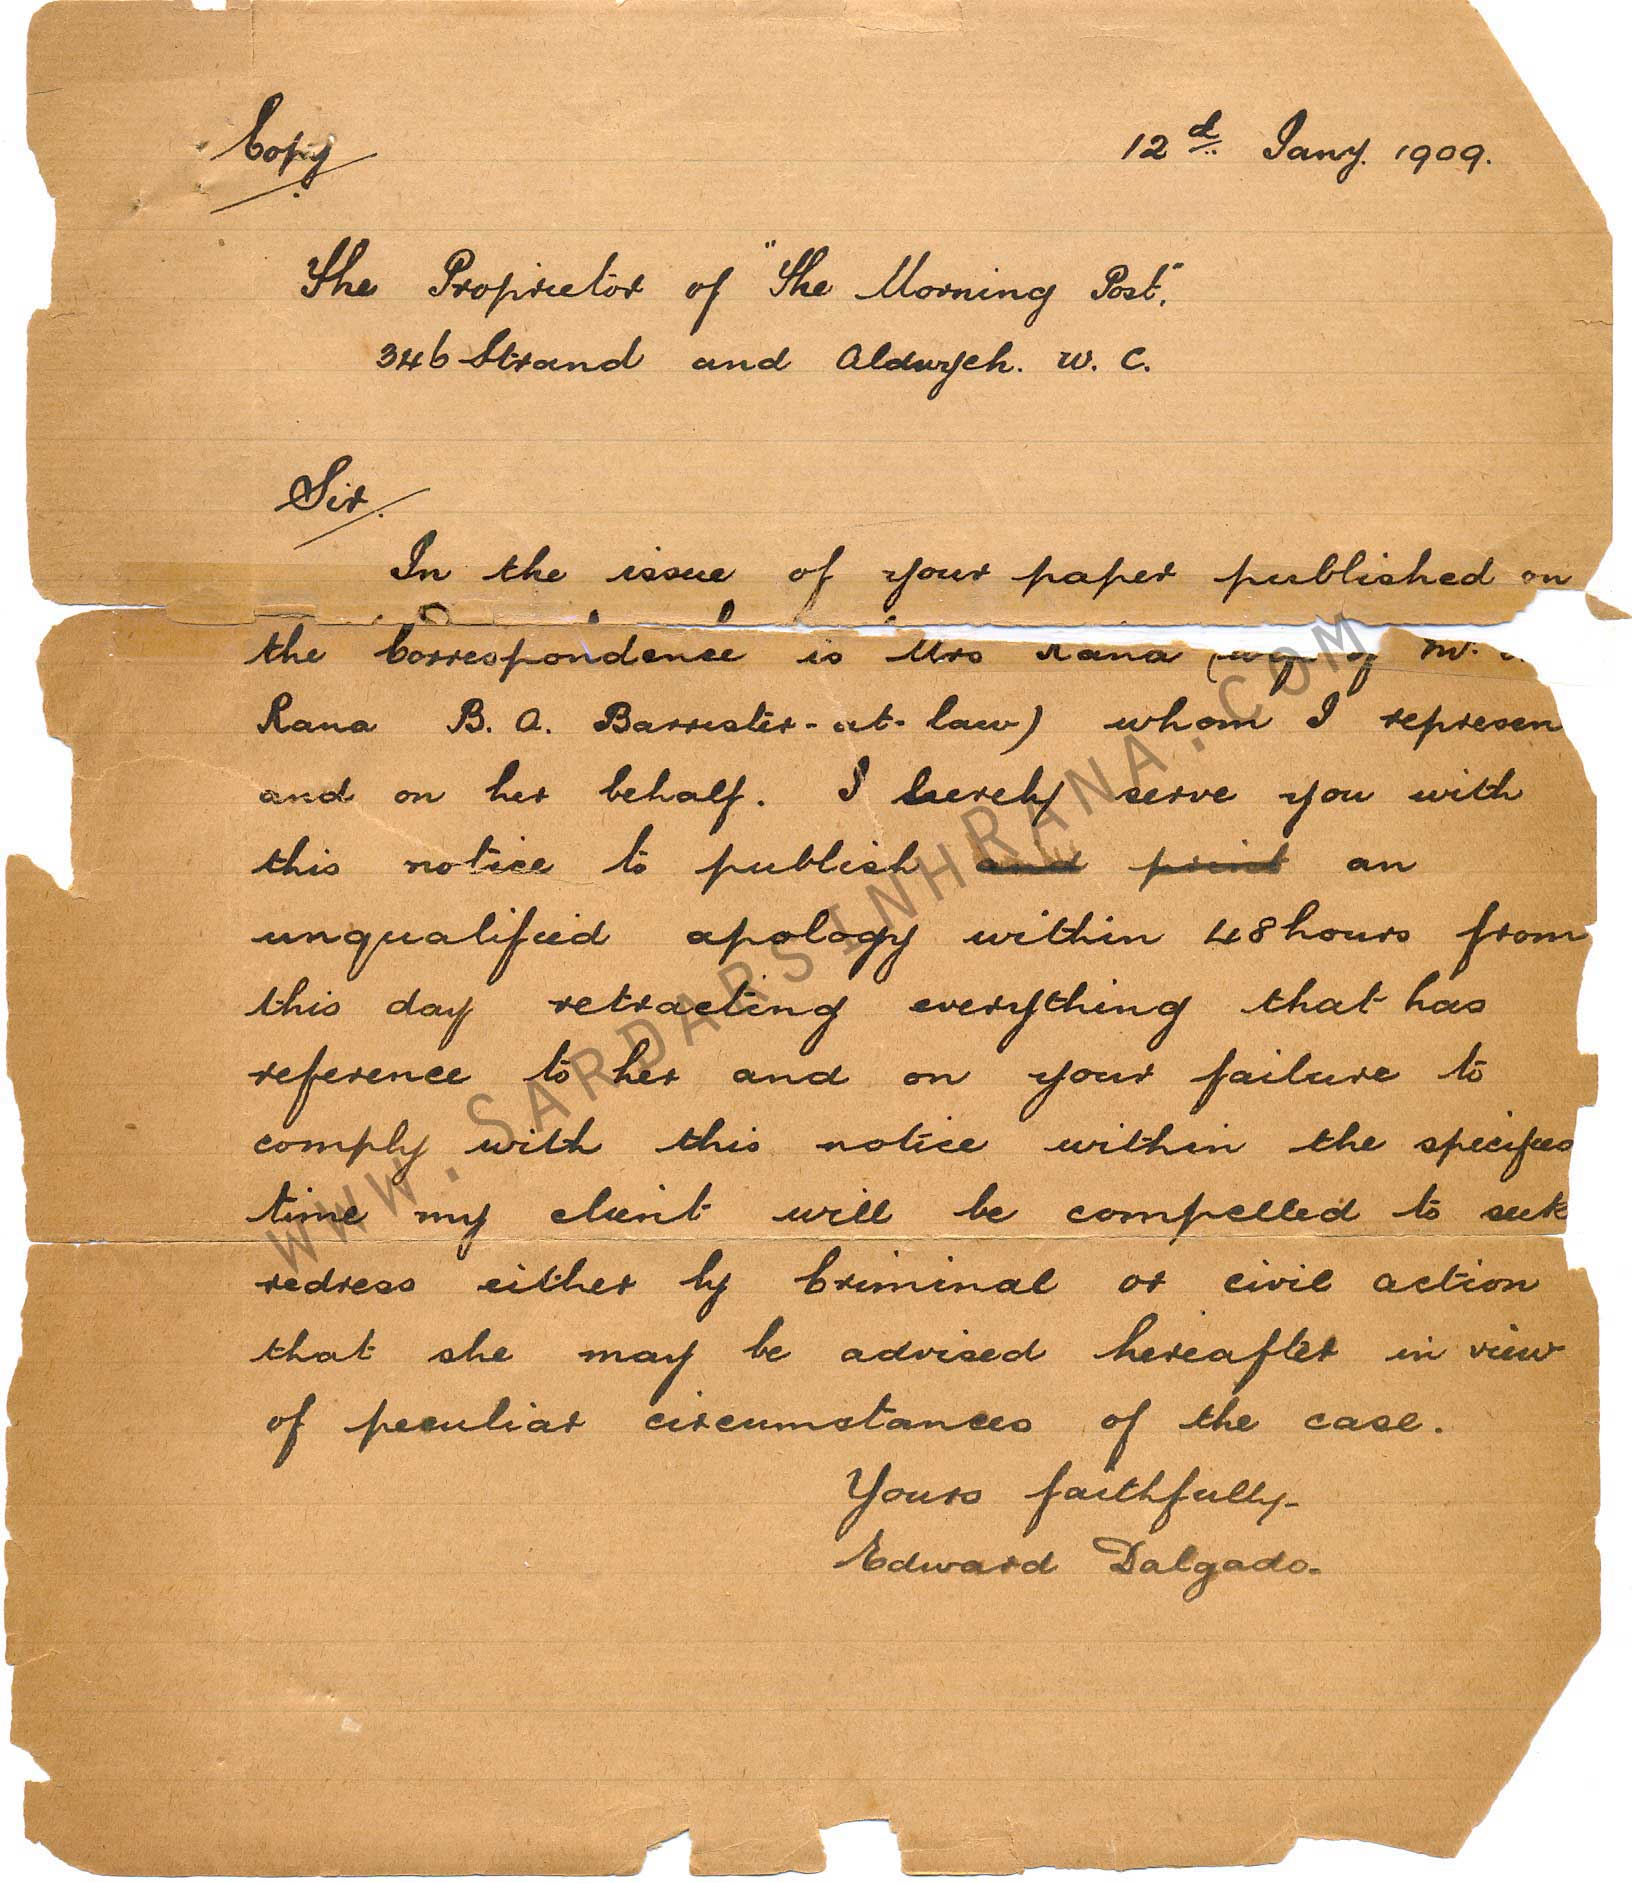 Copy
12d Jany. 1909.
The Proprietor of "The Morning Post",
346 Strand and Aldwych. W. C.
Sir.
In the issue of your paper published on
the Correspondence is Mrs Rana (wife of Mr.
Rana B. A. Barrister-at-law) whom I represen
and on her behalf. I hereby serve you with
this notice to publish and print an
unqualified apology within 48 hours from
this day retracting everything that has
reference to her and on your failure to
comply with this notice within the specified
time my client will be compelled to seek
redress either by Criminal or civil action
that she may be advised hereafter in view
of peculiar circumstances of the case.
Yours faithfully-
Edward Dalgado.
WWW.SARDARSINHRANA.COM